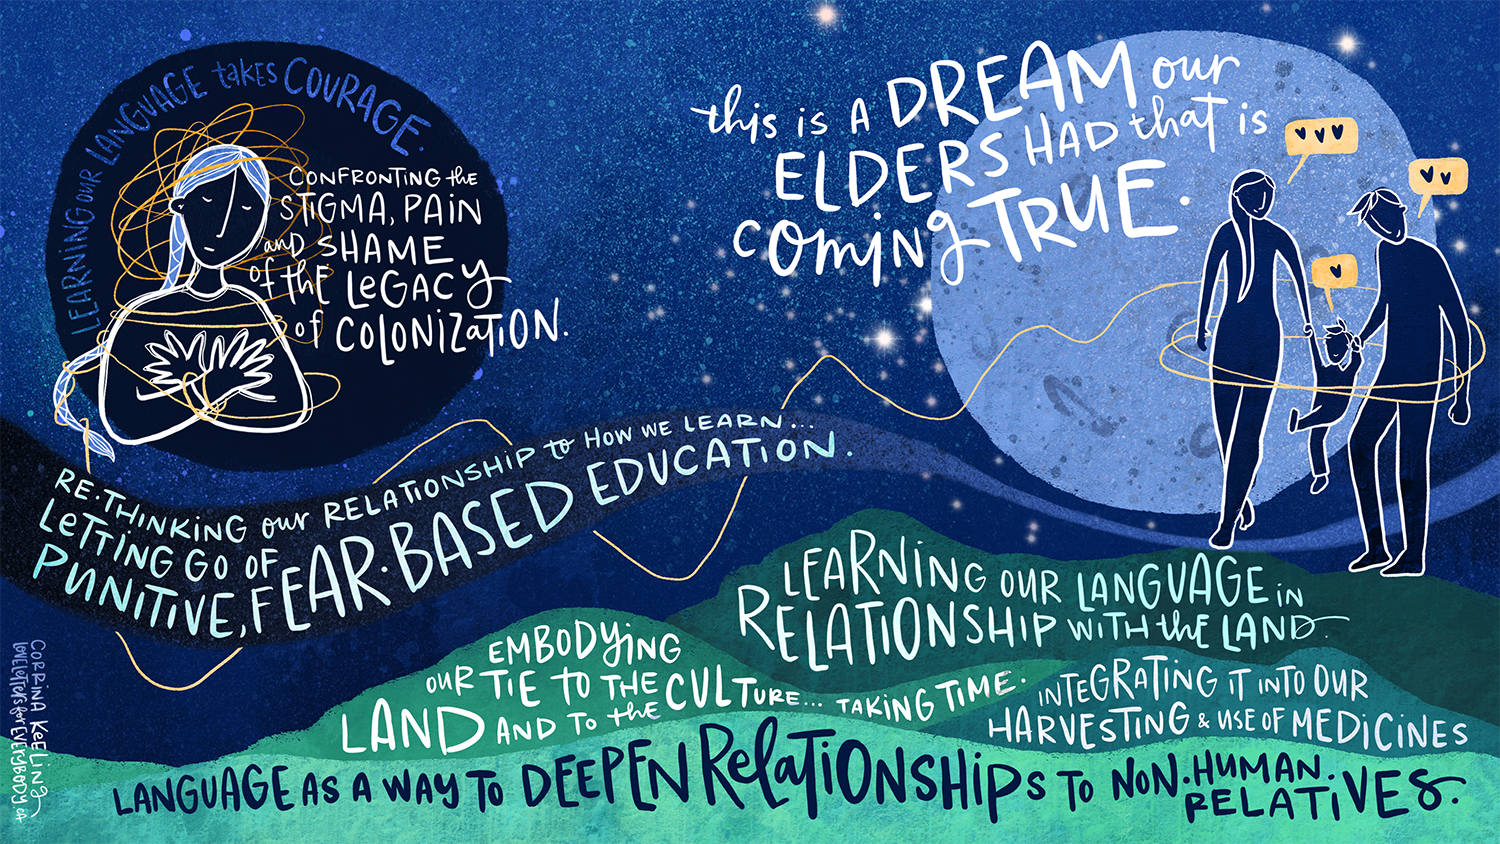 LEARNING OUR LANGUAGE takes COURAGE.
CONFRONTING the
STIGMA, PAIN
and SHAME
of the LEGACY
of COLONIZATION.
this is A DREAM our
ELDERS HAD that is
coming TRUE.
RE-THINKING our RELATIONSHIP to HOW WE LEARN...
LETTING GO OF
PUNITIVE, FEAR-BASED EDUCATION.
LEARNING OUR LANGUAGE IN
RELATIONSHIP WITH the LAND.
EMBODYING
OUR TIE TO THE
LAND AND TO the CULTURE... TAKING TIME.
INTEGRATING IT INTO OUR
HARVESTING & USE OF MEDICINES
LANGUAGE AS A WAY TO DEEPEN RELATIONSHIPS TO NON-HUMAN
RELATIVES.
CORINA KEELING
LOVELETTERS for EVERYBODY.CA